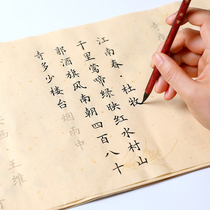 江南春·杜牧
千里莺啼绿映红水村山
郭酒旗风南朝四百八十
寺多少楼台烟雨中
王维